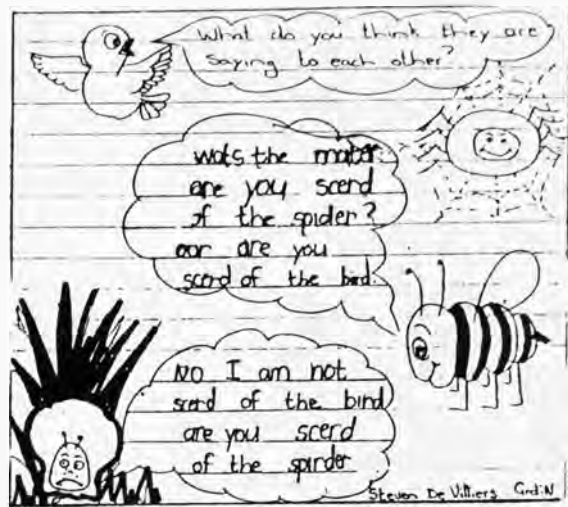 What do you think they are
saying to each other?
wats the mater
are you scerd
of the spider?
oor are you
scerd of the bird.
No I am not
scerd of the bind
are you scerd
of the spirder
Steven De Villiers Grd:N